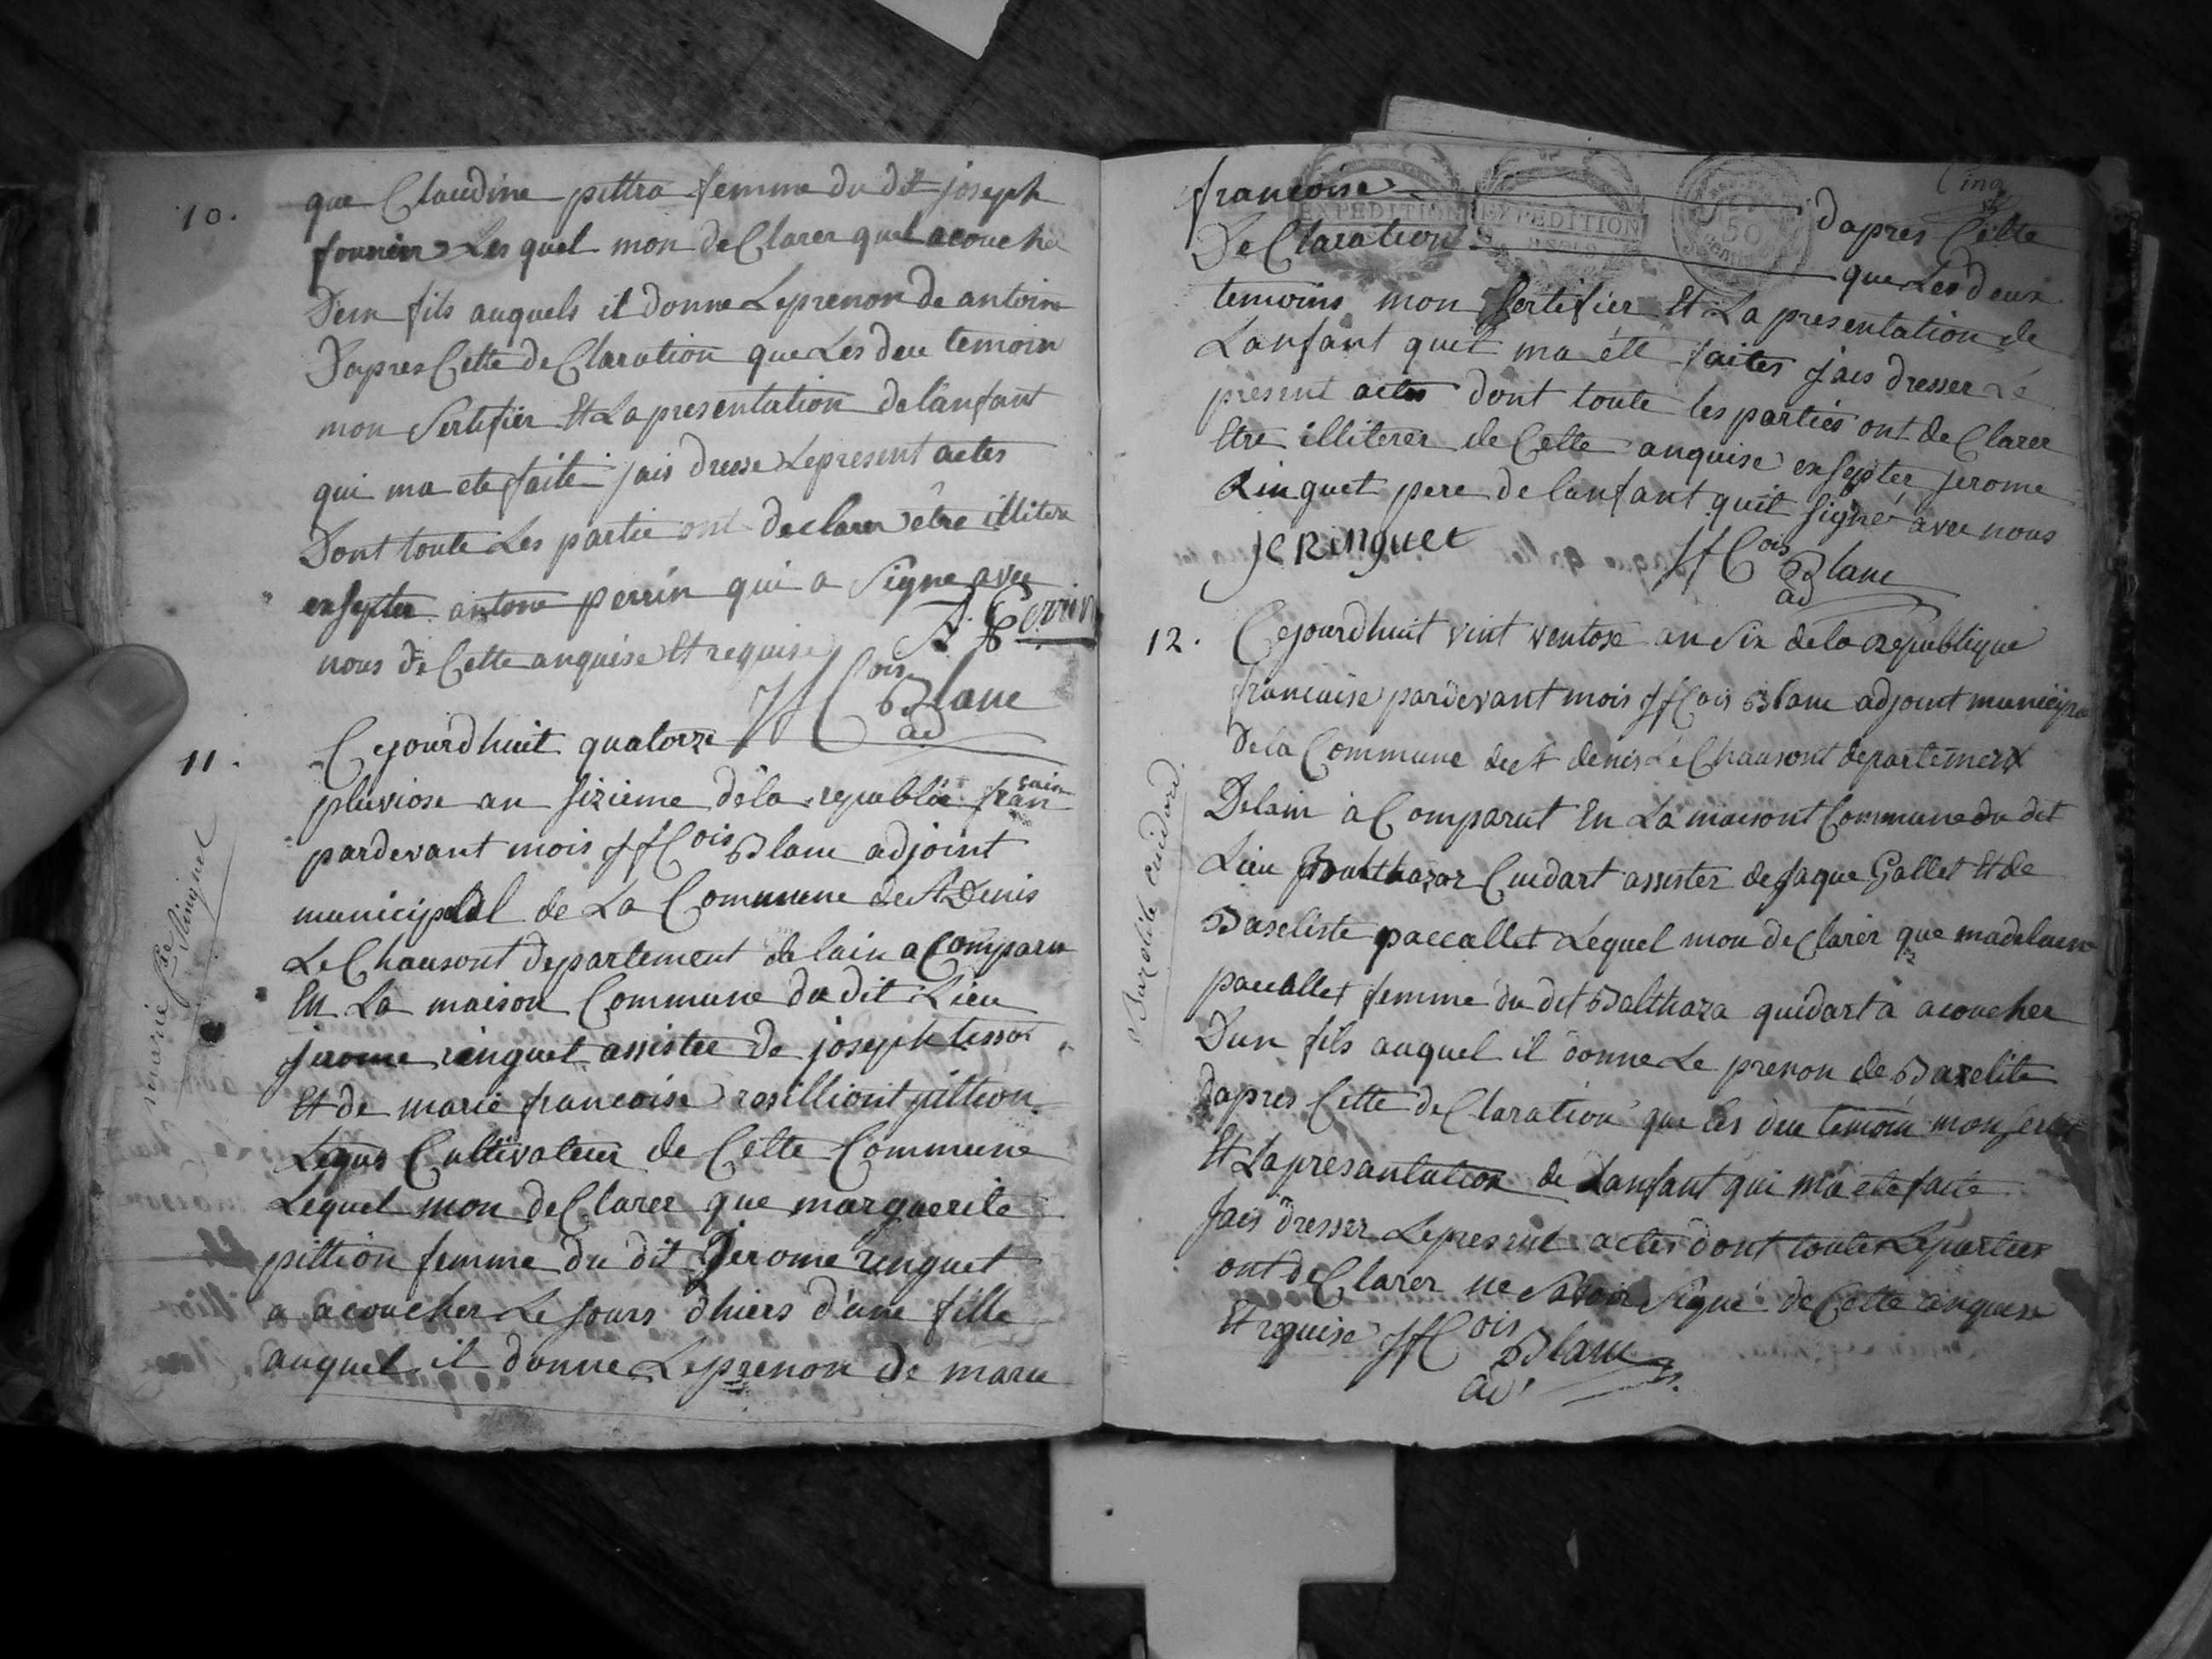 10.
que Claudine pittra femme du dit joseph
fournier Les quel mon deClarer quel acouche
Dem fils auquels il donne Leprenon de antoine
Dapres Cette deClaration que Les deu temoin
mon Sertifier Et La presentation de lanfant
qui ma ete faite jais dresse Lepresent actes
Dont toute Les partie ont declarer être illitere
exsepter antone perrin qui a Signe avec
nous de Cette anquise Et requise
A. Perrin
JfCois Blanc
ad
11.
Cejourdhuit quatorze
pluviose an sizieme dela republic fran
caise
pardevant mois JfCois Blanc adjoint
municipal de La Commune de St Denis
Le Chausont departement de lain a Comparu
En La maison Commune du dit Lieu
jerome ringuet assistee de joseph tissot
Et de marie francoise rosilliont pittion
Cultivateur de Cette Commune
Lequel mon deClarer que marguerite
pittion femme du dit Jerome ringuet
a acoucher Le Jours dhiers d'une fille
auquel il donne Leprenon de marie
marie fse
Ringuet
Cinq
francoise
EXPEDITION
EXPEDITION
50
dapres Cette
DeClaration
que Les deux
temoins mon Sertifier Et La presentation de
Lanfant quil ma été faites Jais dresser Le
present actes dont toute les parties ont deClarer
Etre illiterer de Cette anquise exsepter jerome
Ringuet pere de lanfant quit Signé avec nous
je Ringuet
JfCois Blanc
ad
12.
Cejourdhuit vint ventose an Six de la republique
francaise pardevant mois JfCois Blanc adjoint municipal
De la Commune de St denis Le Chausont departement
Delain à Comparut En La maisont Commune du dit
Lieu Balthazar Cuidart assister de Jaque Gallet Et de
Baseliste paccallet Lequel mon deClarer que madelaine
paccallet femme du dit Balthaza quidart à acoucher
Dun fils auquel il donne Le prenon de Bazelite
dapres Cette deClaration que les deu temoin mon
Et La presantation de Lanfant qui ma ete faite
Jais dresser Lepresent actes dont toute Leparties
ont deClarer ne Savoir Signé de Cette anquise
Et requise JfCois Blanc
ad
Bazelite cuidard